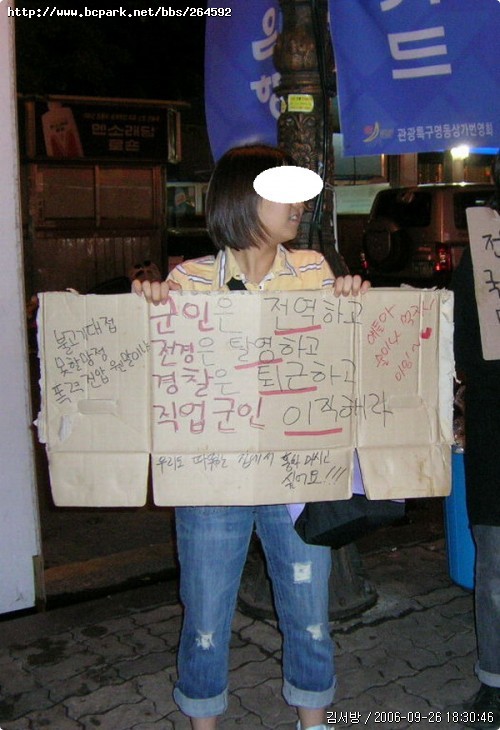 http://www.bcpark.net/bbs/264592
은행
카드
관광특구명동상가번영회
멘소래담
로숀
군인은 전역하고
전경은 탈영하고
경찰은 퇴근하고
직업군인 이직해라
불고기대접
못할망정
폭력진압 웬말이냐
우리도 따뜻한 집에서
싶어요!!!
전
국
김서방 / 2006-09-26 18:30:46